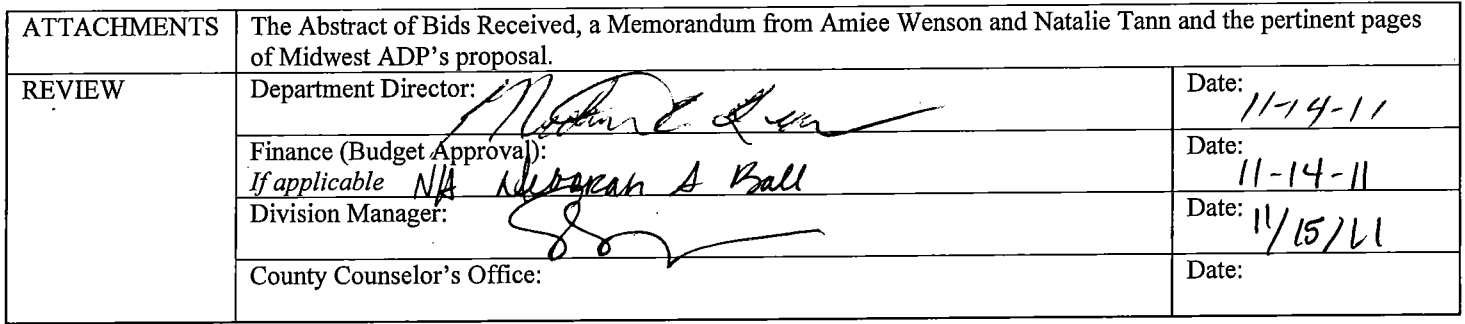 ATTACHMENTS
The Abstract of Bids Received, a Memorandum from Amiee Wenson and Natalie Tann and the pertinent pages
of Midwest ADP's proposal.
REVIEW
Department Director:
Date:
11-14-11
Finance (Budget Approval):
If applicable N/A Deborah A Ball
Date:
11-14-11
Division Manager:
Date: 11/15/11
County Counselor's Office:
Date: